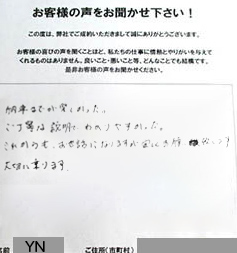 お客様の声をお聞かせ下さい!
この度は、弊社でご成約いただきまして誠にありがとうございます。
お客様の喜びの声を聞くことほど、私たちの仕事に情熱とやりがいを与えて
くれるものはありません。良いこと・悪いこと等、どんなことでも結構です。
是非お客様の声をお聞かせください。
納車までが
ご丁寧な説明で、わかりやすかった。
これからも、お世話になりますが
大切に乗ります。
名前 YN ご住所(市町村)